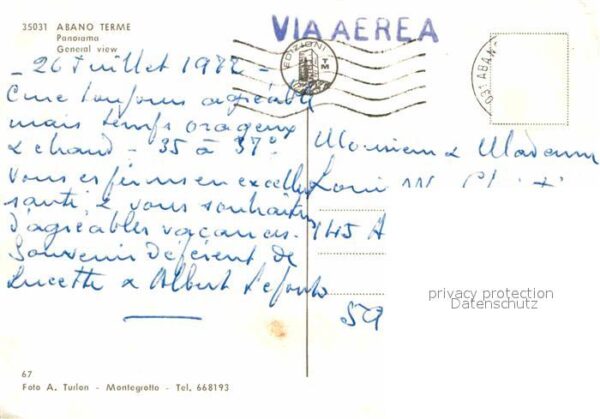 35031 ABANO TERME
Panorama
General view
VIA AEREA
EDIZIONI
TM
031 ABAN
_ 26 Juillet 19
Cure toujours agréable
mais temps orageux
& chaud - 35 à 37°
Vous espérons en excellente
santé & vous souhaitons
d'agréables vacances.
Souvenir déférent de
Lucette & Albert
Monsieur & Madame
Louis
145 A
59
privacy protection
Datenschutz
67
Foto A. Turlon - Montegrotto - Tel. 668193